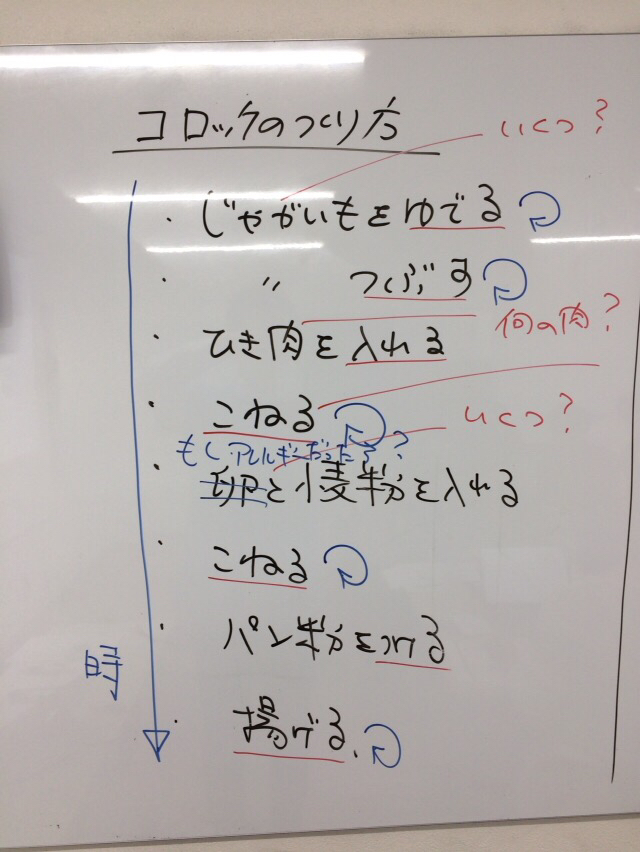 コロッケのつくり方
いくつ?
・じゃがいもをゆでる
・〃 つぶす
・ひき肉を入れる
何の肉?
・こねる
いくつ?
もしアレルギーだったら?
・卵と小麦粉を入れる
・こねる
・パン粉をつける
時
・揚げる